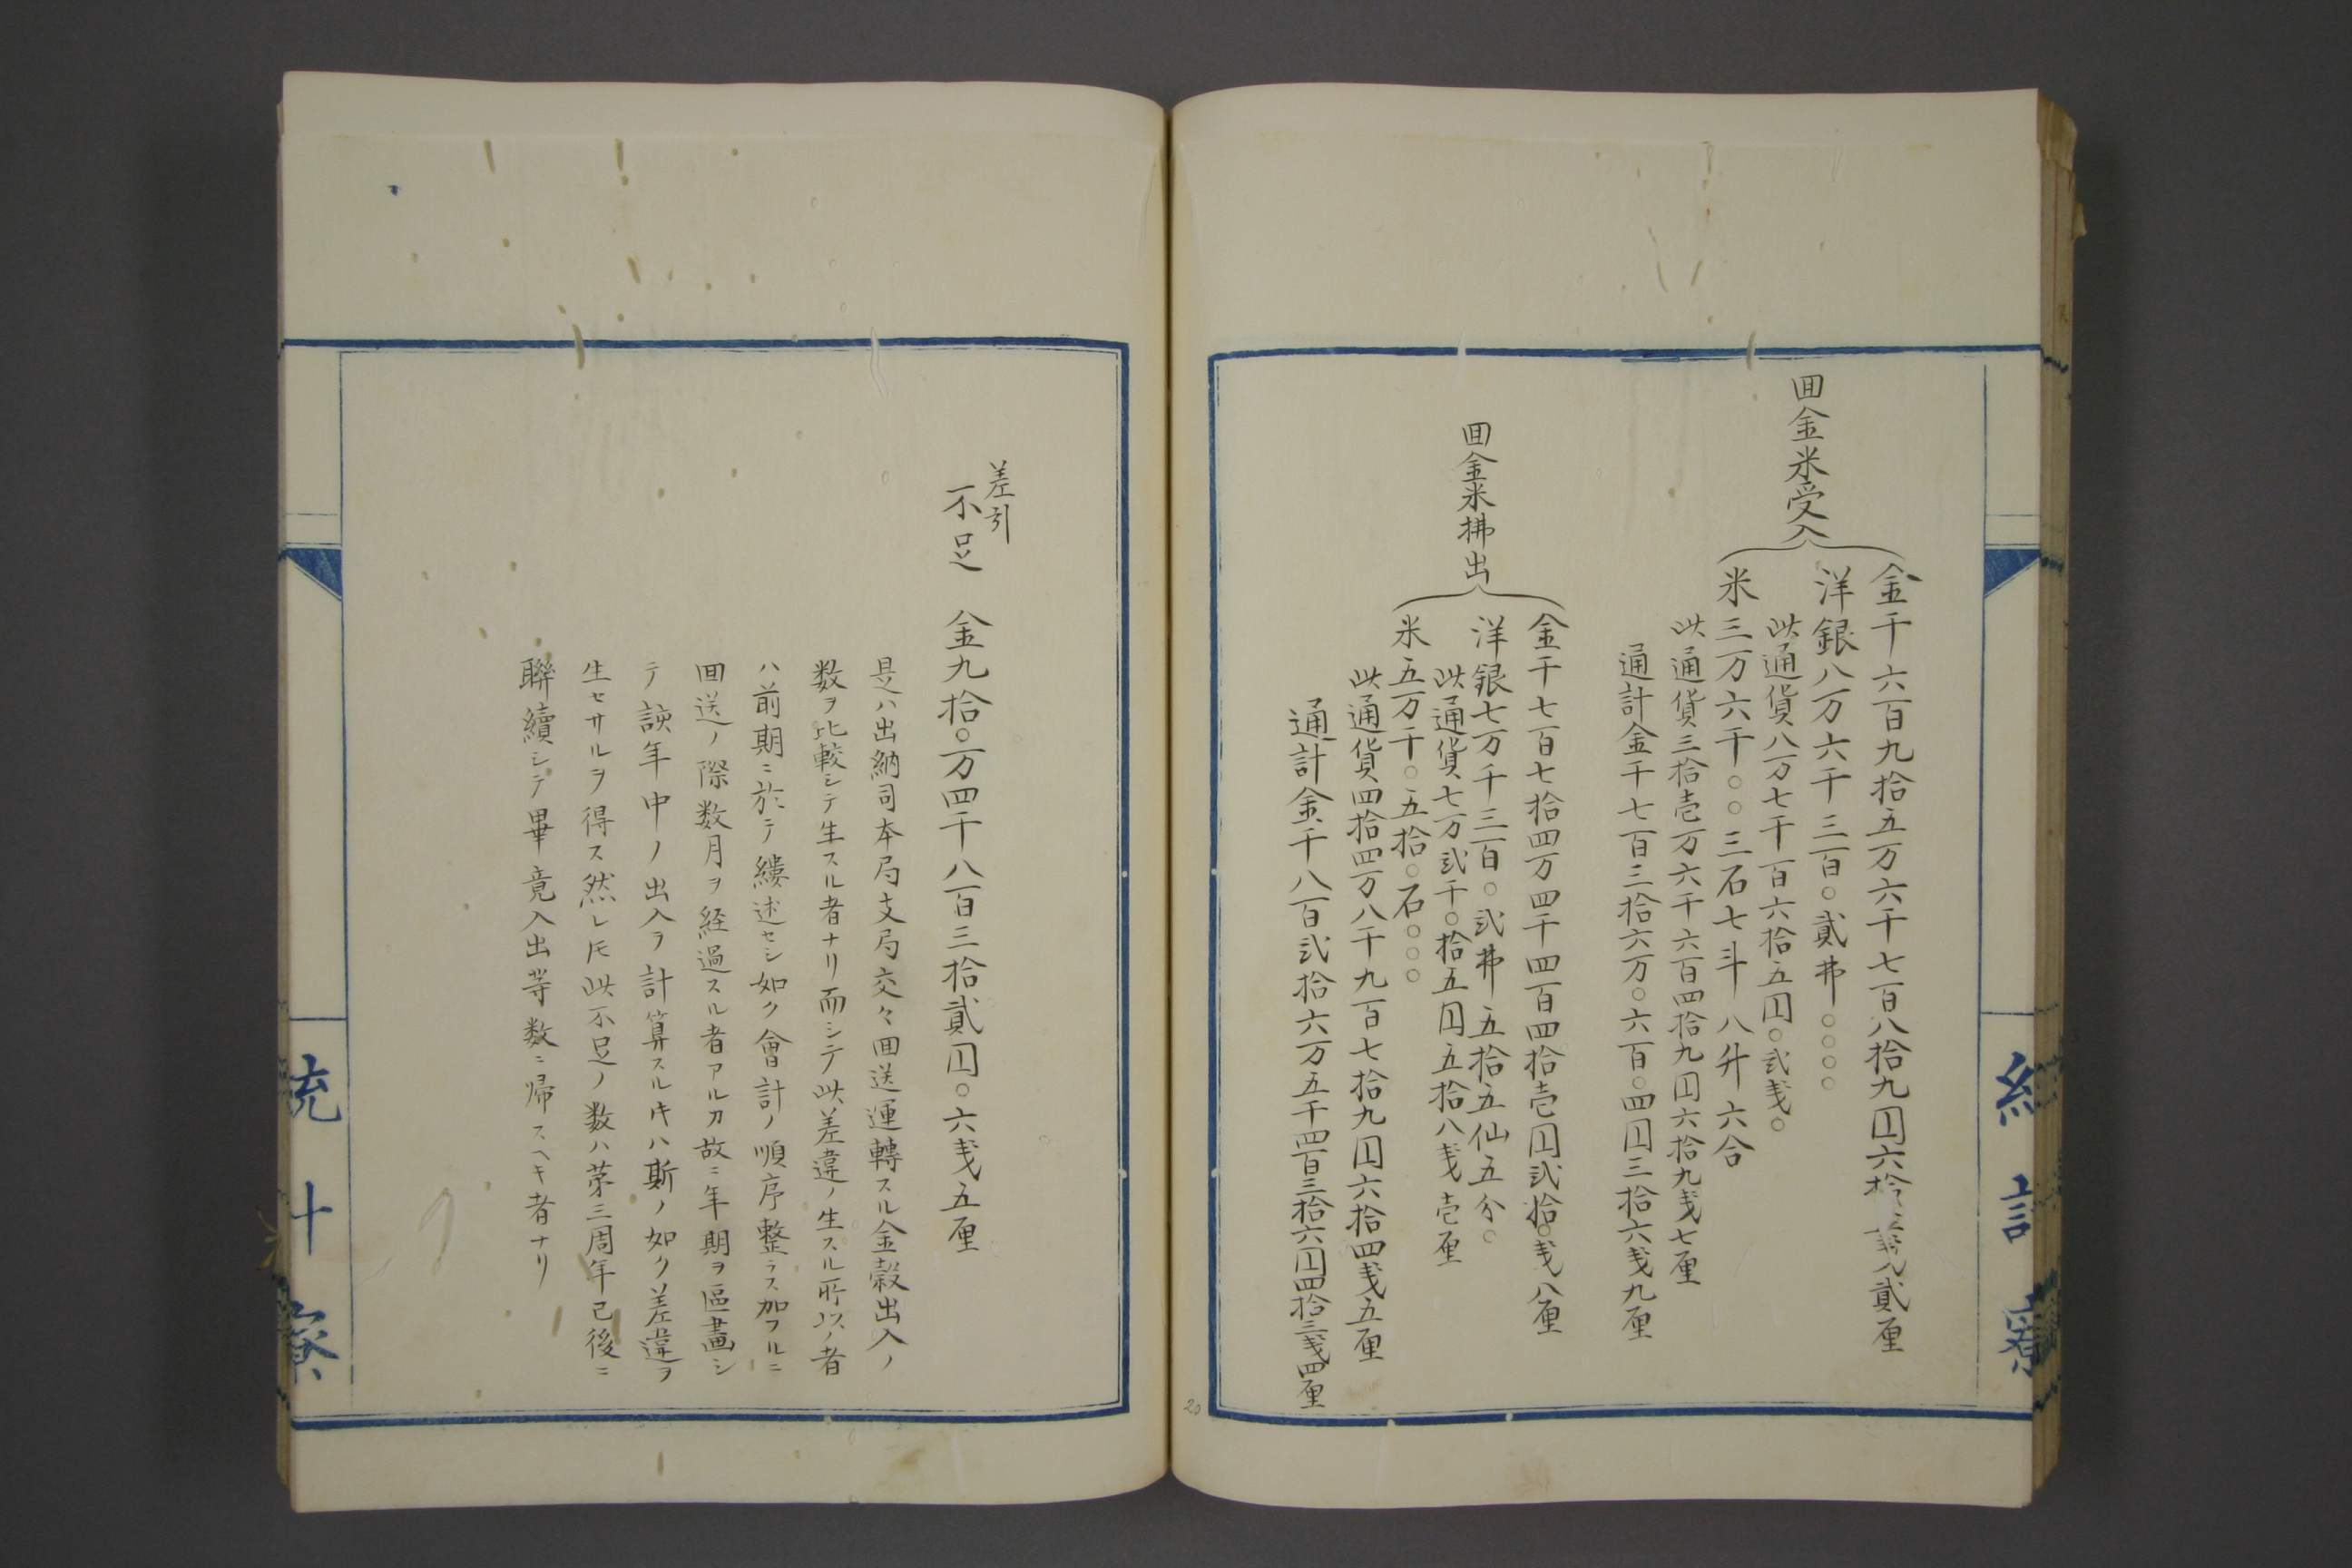 統計寮
囬金米受入
金千六百九拾五万六千七百八拾九円六拾銭貳厘
洋銀八万六千三百〇貳弗〇〇〇〇
此通貨八万七千百六拾五円〇弐銭〇
米三万六千〇〇三石七斗八升六合
此通貨三拾壱万六千六百四拾九円六拾九銭七厘
通計金千七百三拾六万〇六百〇四円三拾六銭九厘
囬金米拂出
金千七百七拾四万四千四百四拾壱円弐拾〇銭八厘
洋銀七万千三百〇弐弗五拾五仙五分〇
此通貨七万弐千〇拾五円五拾八銭壱厘
米五万千〇五拾〇石〇〇〇
此通貨四拾四万八千九百七拾九円六拾四銭五厘
通計金千八百弐拾六万五千四百三拾六円四拾三銭四厘
20
差引
不足 金九拾〇万四千八百三拾貳円〇六銭五厘
是ハ出納司本局支局交々囬送運轉スル金穀出入ノ
数ヲ比較シテ生スル者ナリ而シテ此差違ノ生スル所以ノ者
ハ前期ニ於テ縷述セシ如ク會計ノ順序整ラス加フルニ
囬送ノ際数月ヲ経過スル者アルカ故ニ年期ヲ區畫シ
テ該年中ノ出入ヲ計算スル片ハ斯ノ如ク差違ヲ
生セサルヲ得ス然レ𪜈此不足ノ数ハ第三周年已後ニ
聯續シテ畢竟入出等数ニ帰スヘキ者ナリ
統計寮